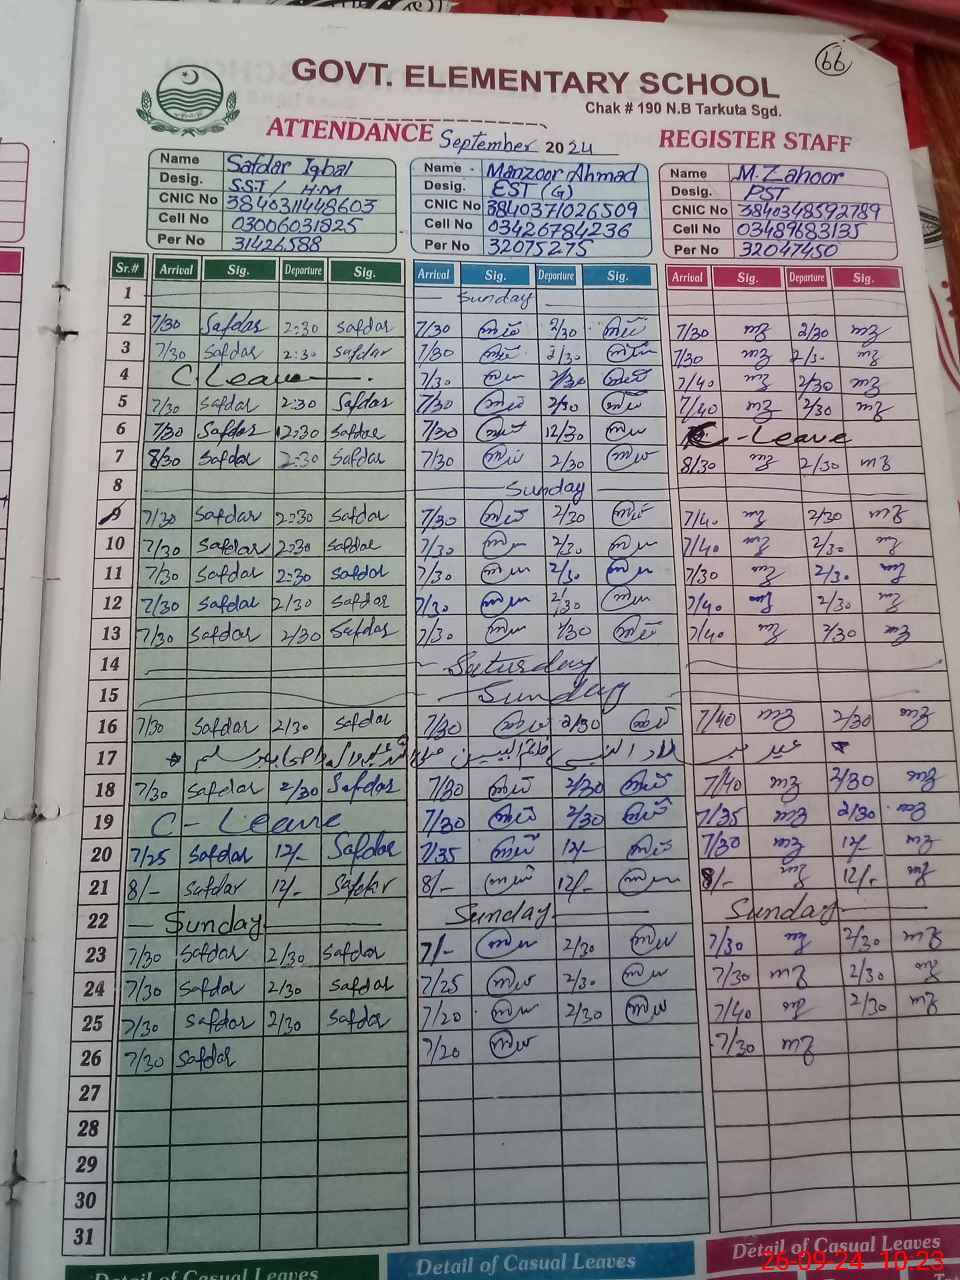 66
GOVT. ELEMENTARY SCHOOL
Chak # 190 N.B Tarkuta Sgd.
ATTENDANCE September 2024 REGISTER STAFF
Name Safdar Iqbal Name Manzoor Ahmad Name M. Zahoor
Desig. S.S.T / H.M Desig. EST (G) Desig. PST
CNIC No 3840311448603 CNIC No 3840371026509 CNIC No 3840348592789
Cell No 03006031825 Cell No 03426784236 Cell No 03489683135
Per No 31426588 Per No 32075275 Per No 32047450
Sr.# Arrival Sig. Departure Sig. Arrival Sig. Departure Sig. Arrival Sig. Departure Sig.
1 Sunday
2 7/30 Safdar 2:30 Safdar 7/30 2/30 7/30 2/30
3 7/30 Safdar 2:30 Safdar 7/30 2/30 7/30 2/30
4 C. Leave 7/30 2/30 7/40 2/30
5 7/30 Safdar 2:30 Safdar 7/30 2/30 7/40 2/30
6 7/30 Safdar 12:30 Safdar 7/30 12/30 C-Leave
7 8/30 Safdar 2:30 Safdar 7/30 2/30 8/30 2/30
8 Sunday
9 7/30 Safdar 2:30 Safdar 7/30 2/30 7/40 2/30
10 7/30 Safdar 2:30 Safdar 7/30 2/30 7/40 2/30
11 7/30 Safdar 2:30 Safdar 7/30 2/30 7/30 2/30
12 7/30 Safdar 2/30 Safdar 7/30 2/30 7/40 2/30
13 7/30 Safdar 2/30 Safdar 7/30 2/30 7/40 2/30
14 Saturday
15 Sunday
16 7/30 Safdar 2/30 Safdar 7/30 2/30 7/40 2/30
17
18 7/30 Safdar 2/30 Safdar 7/30 2/30 7/40 2/30
19 C- Leave 7/30 2/30 7/35 2/30
20 7/25 Safdar 12/- Safdar 7/35 12/- 7/30 12/-
21 8/- Safdar 12/- Safdar 8/- 12/- 8/- 12/-
22 Sunday Sunday Sunday
23 7/30 Safdar 2/30 Safdar 7/- 2/30 7/30 2/30
24 7/30 Safdar 2/30 Safdar 7/25 2/30 7/30 2/30
25 7/30 Safdar 2/30 Safdar 7/20 2/30 7/40 2/30
26 7/30 Safdar 7/20 7/30
27
28
29
30
31
Detail of Casual Leaves Detail of Casual Leaves Detail of Casual Leaves
26-09-24 10:23